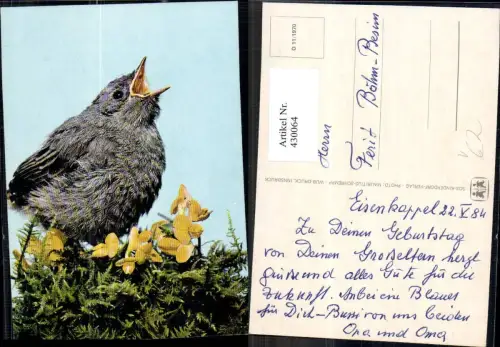 D 11/1970
Artikel Nr.
430064
Herrn
Ferit Böhm-Besim
Eisenkappel 22.V.84
Zu Deinem Geburtstag
von Deinen Großeltern herzl
grüsse und alles Gute für die
Zukunft. Anbei eine Blaues
für Dich-Bussi von uns beiden
Opa und Oma